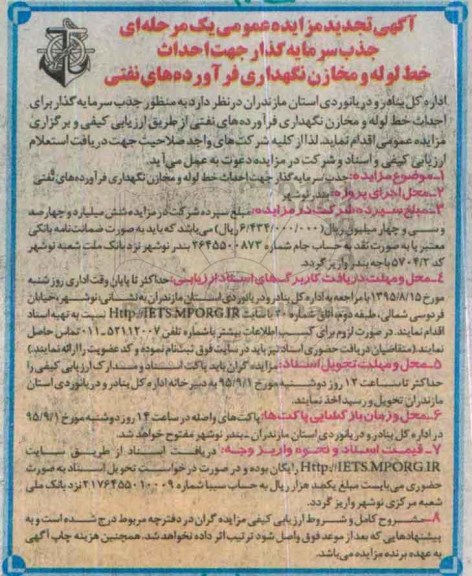 آگهی تجدید مزایده عمومی یک مرحله‌ای
جذب سرمایه گذار جهت احداث
خط لوله و مخازن نگهداری فرآورده‌های نفتی
اداره کل بنادر و دریانوردی استان مازندران در نظر دارد به منظور جذب سرمایه گذار برای
احداث خط لوله و مخازن نگهداری فرآورده‌های نفتی از طریق ارزیابی کیفی و برگزاری
مزایده عمومی اقدام نماید. لذا از کلیه شرکت‌های واجد صلاحیت جهت دریافت استعلام
ارزیابی کیفی و اسناد و شرکت در مزایده دعوت به عمل می‌آید.
۱- موضوع مزایده: جذب سرمایه گذار جهت احداث خط لوله و مخازن نگهداری فرآورده‌های نفتی
۲- محل اجرای پروژه: بندر نوشهر
۳- مبلغ سپرده شرکت در مزایده: مبلغ سپرده شرکت در مزایده شش میلیارد و چهارصد
و سی و چهار میلیون ریال (۶/۴۳۴/۰۰۰/۰۰۰ ریال) می‌باشد که باید به صورت ضمانت‌نامه بانکی
معتبر یا به صورت نقد به حساب جام شماره ۲۶۴۵۵۰۰۸۷۳ بندر نوشهر نزد بانک ملت شعبه نوشهر
کد ۵۷۰۴/۳ باجه بندر واریز گردد.
۴- محل و مهلت دریافت کاربرگ‌های اسناد ارزیابی: حداکثر تا پایان وقت اداری روز شنبه
مورخ ۱۳۹۵/۸/۱۵ با مراجعه به اداره کل بنادر و دریانوردی استان مازندران به نشانی: نوشهر، خیابان
فردوسی شمالی، طبقه دوم، اتاق شماره ۳۰ یا سایت Http://IETS.MPORG.IR نسبت به تهیه اسناد
اقدام نمایند. در صورت لزوم برای کسب اطلاعات بیشتر با شماره تلفن ۵۲۱۱۲۰۰۷-۰۱۱ تماس حاصل
نمایند. (متقاضیان دریافت حضوری اسناد نیز باید در سایت فوق ثبت‌نام نموده و کد عضویت را ارائه نمایند.)
۵- محل و مهلت تحویل اسناد: مزایده گران باید پاکت اسناد و مدارک ارزیابی کیفی را
حداکثر تا ساعت ۱۲ روز دوشنبه مورخ ۹۵/۹/۱ به دبیرخانه اداره کل بنادر و دریانوردی استان
مازندران تحویل و رسید اخذ نمایند.
۶- محل و زمان بازگشایی پاکت‌ها: پاکت‌های واصله در ساعت ۱۴ روز دوشنبه مورخ ۹۵/۹/۱
در اداره کل بنادر و دریانوردی استان مازندران - بندر نوشهر مفتوح خواهد شد.
۷- قیمت اسناد و نحوه واریز وجه: دریافت اسناد از طریق سایت
Http://IETS.MPORG.IR رایگان بوده و در صورت درخواست تحویل اسناد به صورت
حضوری می‌بایست مبلغ یکصد هزار ریال به حساب سیبا شماره ۲۱۷۶۴۵۵۰۱۰۰۰۹ نزد بانک ملی
شعبه مرکزی نوشهر واریز گردد.
۸- مشروح کامل و شروط ارزیابی کیفی مزایده گران در دفترچه مربوط درج شده است و به
پیشنهادهایی که بعد از موعد فوق واصل شود ترتیب اثر داده نخواهد شد. همچنین هزینه چاپ آگهی
به عهده برنده مزایده می‌باشد.